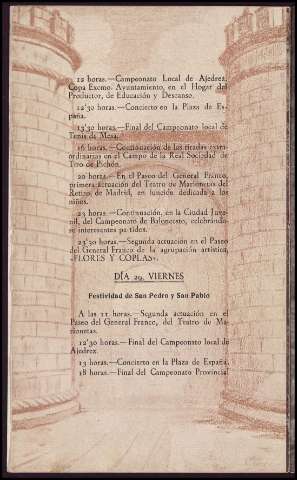 12 horas.—Campeonato Local de Ajedrez,
Copa Excmo. Ayuntamiento, en el Hogar del
Productor, de Educación y Descanso.
12'30 horas.—Concierto en la Plaza de Es-
paña.
13'30 horas.—Final del Campeonato local de
Tenis de Mesa.
16 horas.—Continuación de las tiradas extra-
ordinarias en el Campo de la Real Sociedad de
Tiro de Pichón.
20 horas.—En el Paseo del General Franco,
primera actuación del Teatro de Marionetas del
Retiro de Madrid, en función dedicada a los
niños.
23 horas.—Continuación, en la Ciudad Juve-
nil, del Campeonato de Baloncesto, celebrándo-
se interesantes partidos.
23'30 horas.—Segunda actuación en el Paseo
del General Franco de la agrupación artística,
«FLORES Y COPLAS».
DÍA 29. VIERNES
Festividad de San Pedro y San Pablo
A las 11 horas.—Segunda actuación en el
Paseo del General Franco, del Teatro de Ma-
rionetas.
12'30 horas.—Final del Campeonato local de
Ajedrez.
13 horas.—Concierto en la Plaza de España.
18 horas.—Final del Campeonato Provincial